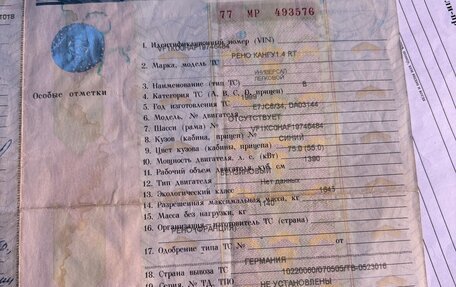 77 МР 493576
Особые отметки
1. Идентификационный номер (VIN)
VF1KC0HAF19745484
2. Марка, модель ТС
РЕНО КАНГУ1.4 RT
УНИВЕРСАЛ
ЛЕГКОВОЙ
3. Наименование (тип ТС)
4. Категория ТС (А, В, С, D, прицеп)
B
5. Год изготовления ТС
1998
6. Модель, № двигателя
E7JC6/34, DA03144
7. Шасси (рама) №
ОТСУТСТВУЕТ
8. Кузов (кабина, прицеп) №
VF1KC0HAF19745484
9. Цвет кузова (кабины, прицепа)
СИНИЙ
10. Мощность двигателя, л. с. (кВт)
75.0 (55.0)
11. Рабочий объем двигателя, куб. см
1390
12. Тип двигателя
13. Экологический класс
Нет данных
14. Разрешенная максимальная масса, кг
15. Масса без нагрузки, кг
16. Организация-изготовитель ТС (страна)
РЕНО (ФРАНЦИЯ)
17. Одобрение типа ТС №
от
18. Страна вывоза ТС
ГЕРМАНИЯ
19. Серия, № ТД, ТПО
10220060/070505/ТВ-0523016
НЕ УСТАНОВЛЕНЫ